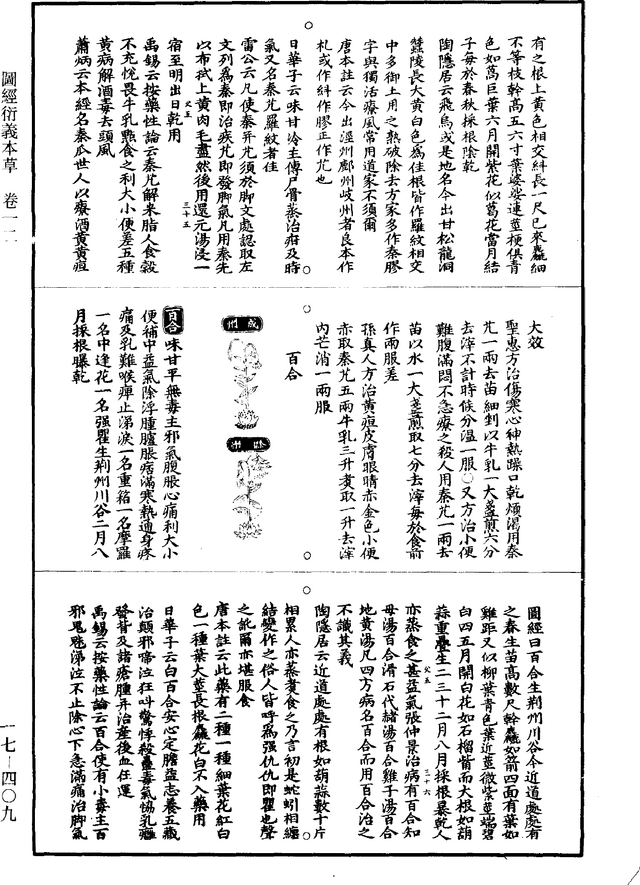 有之根上黃色相交紏長一尺已來麤細
不等枝幹高五六寸葉婆娑連莖梗俱青
色如萵苣葉六月開紫花似葛花當月結
子每於春秋採根陰乾
陶隱居云飛烏或是地名今出甘松龍洞
蠶陵長大黃白色為佳根皆作羅紋相交
中多銜土用之熟破除去方家多作秦膠
字與獨活療風常用道家不須爾
唐本註云今出涇州鄜州岐州者良本作
札或作紏作膠正作艽也
日華子云味甘冷主傳尸骨蒸治疳及時
氣又名秦艽羅紋者佳
雷公云凡使秦并艽須於脚文處認取左
文列為秦即治疾艽即發脚氣凡用秦先
以布拭上黃肉毛盡然後用還元湯浸一
宿至明出日乾用
禹錫云按藥性論云秦艽解米脂人食穀
不充悅畏牛乳點食之利大小便差五種
黃病解酒毒去頭風
蕭炳云本經名秦瓜世人以療酒黃黃疸
大效
聖惠方治傷寒心神熱躁口乾煩渴用秦
艽一兩去苗細剉以牛乳一大盞煎六分
去滓不計時候分溫二服○又方治小便
難腹滿悶不急療之殺人用秦艽一兩去
苗以水一大盞煎取七分去滓每於食前
作兩服差
孫真人方治黃疸皮膚眼睛赤金色小便
赤取秦艽五兩牛乳三升煑取一升去滓
內芒消一兩服
百合
成州
百合味甘平無毒主邪氣腹脹心痛利大小
便補中益氣除浮腫臚脹痞滿寒熱通身疼
痛及乳難喉痺止涕淚一名重箱一名摩羅
一名中逢花一名强瞿生荆州川谷二月八
月採根曝乾
圖經曰百合生荆州川谷今近道處處有
之春生苗高數尺幹麤如箭四面有葉如
雞距又似柳葉青色葉近莖微紫莖端碧
白四五月開白花如石榴觜而大根如胡
蒜重疊生二三十二月八月採根暴乾人
亦蒸食之甚益氣張仲景治病有百合知
母湯百合滑石代赭湯百合雞子湯百合
地黃湯凡四方病名百合而用百合治之
不識其義
陶隱居云近道處處有根如葫蒜數十片
相累人亦蒸煑食之乃言初是蛇蚓相纏
結變作之俗人皆呼為强仇仇即瞿也聲
之訛爾亦堪服食
唐本註云此藥有二種一種細葉花紅白
色一種葉大莖長根麤花白不入藥用
日華子云白百合安心定膽益志養五藏
治顛邪啼泣狂叫驚悸殺蠱毒氣協乳癰
發背及諸瘡腫并治產後血狂運
禹錫云按藥性論云百合使有小毒主百
邪鬼魅涕泣不止除心下急滿痛治脚氣
圖經衍義本草 卷一二
一七—四〇九